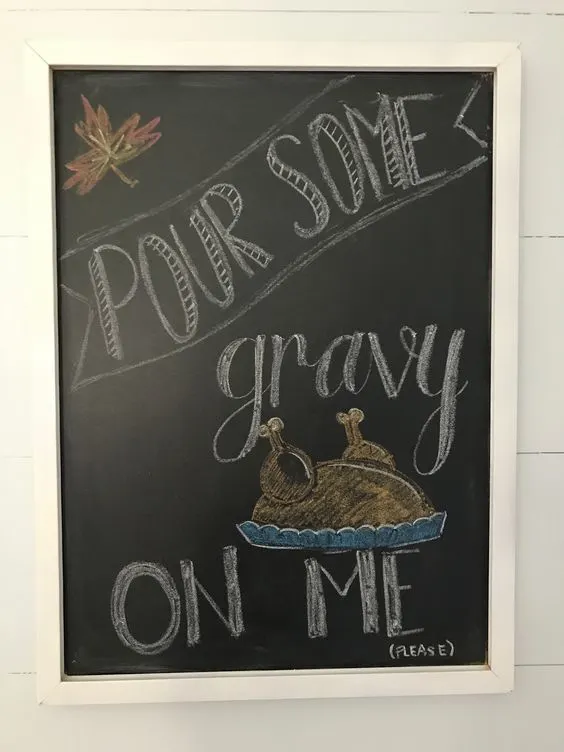 POUR SOME
gravy
ON ME
(PLEASE)